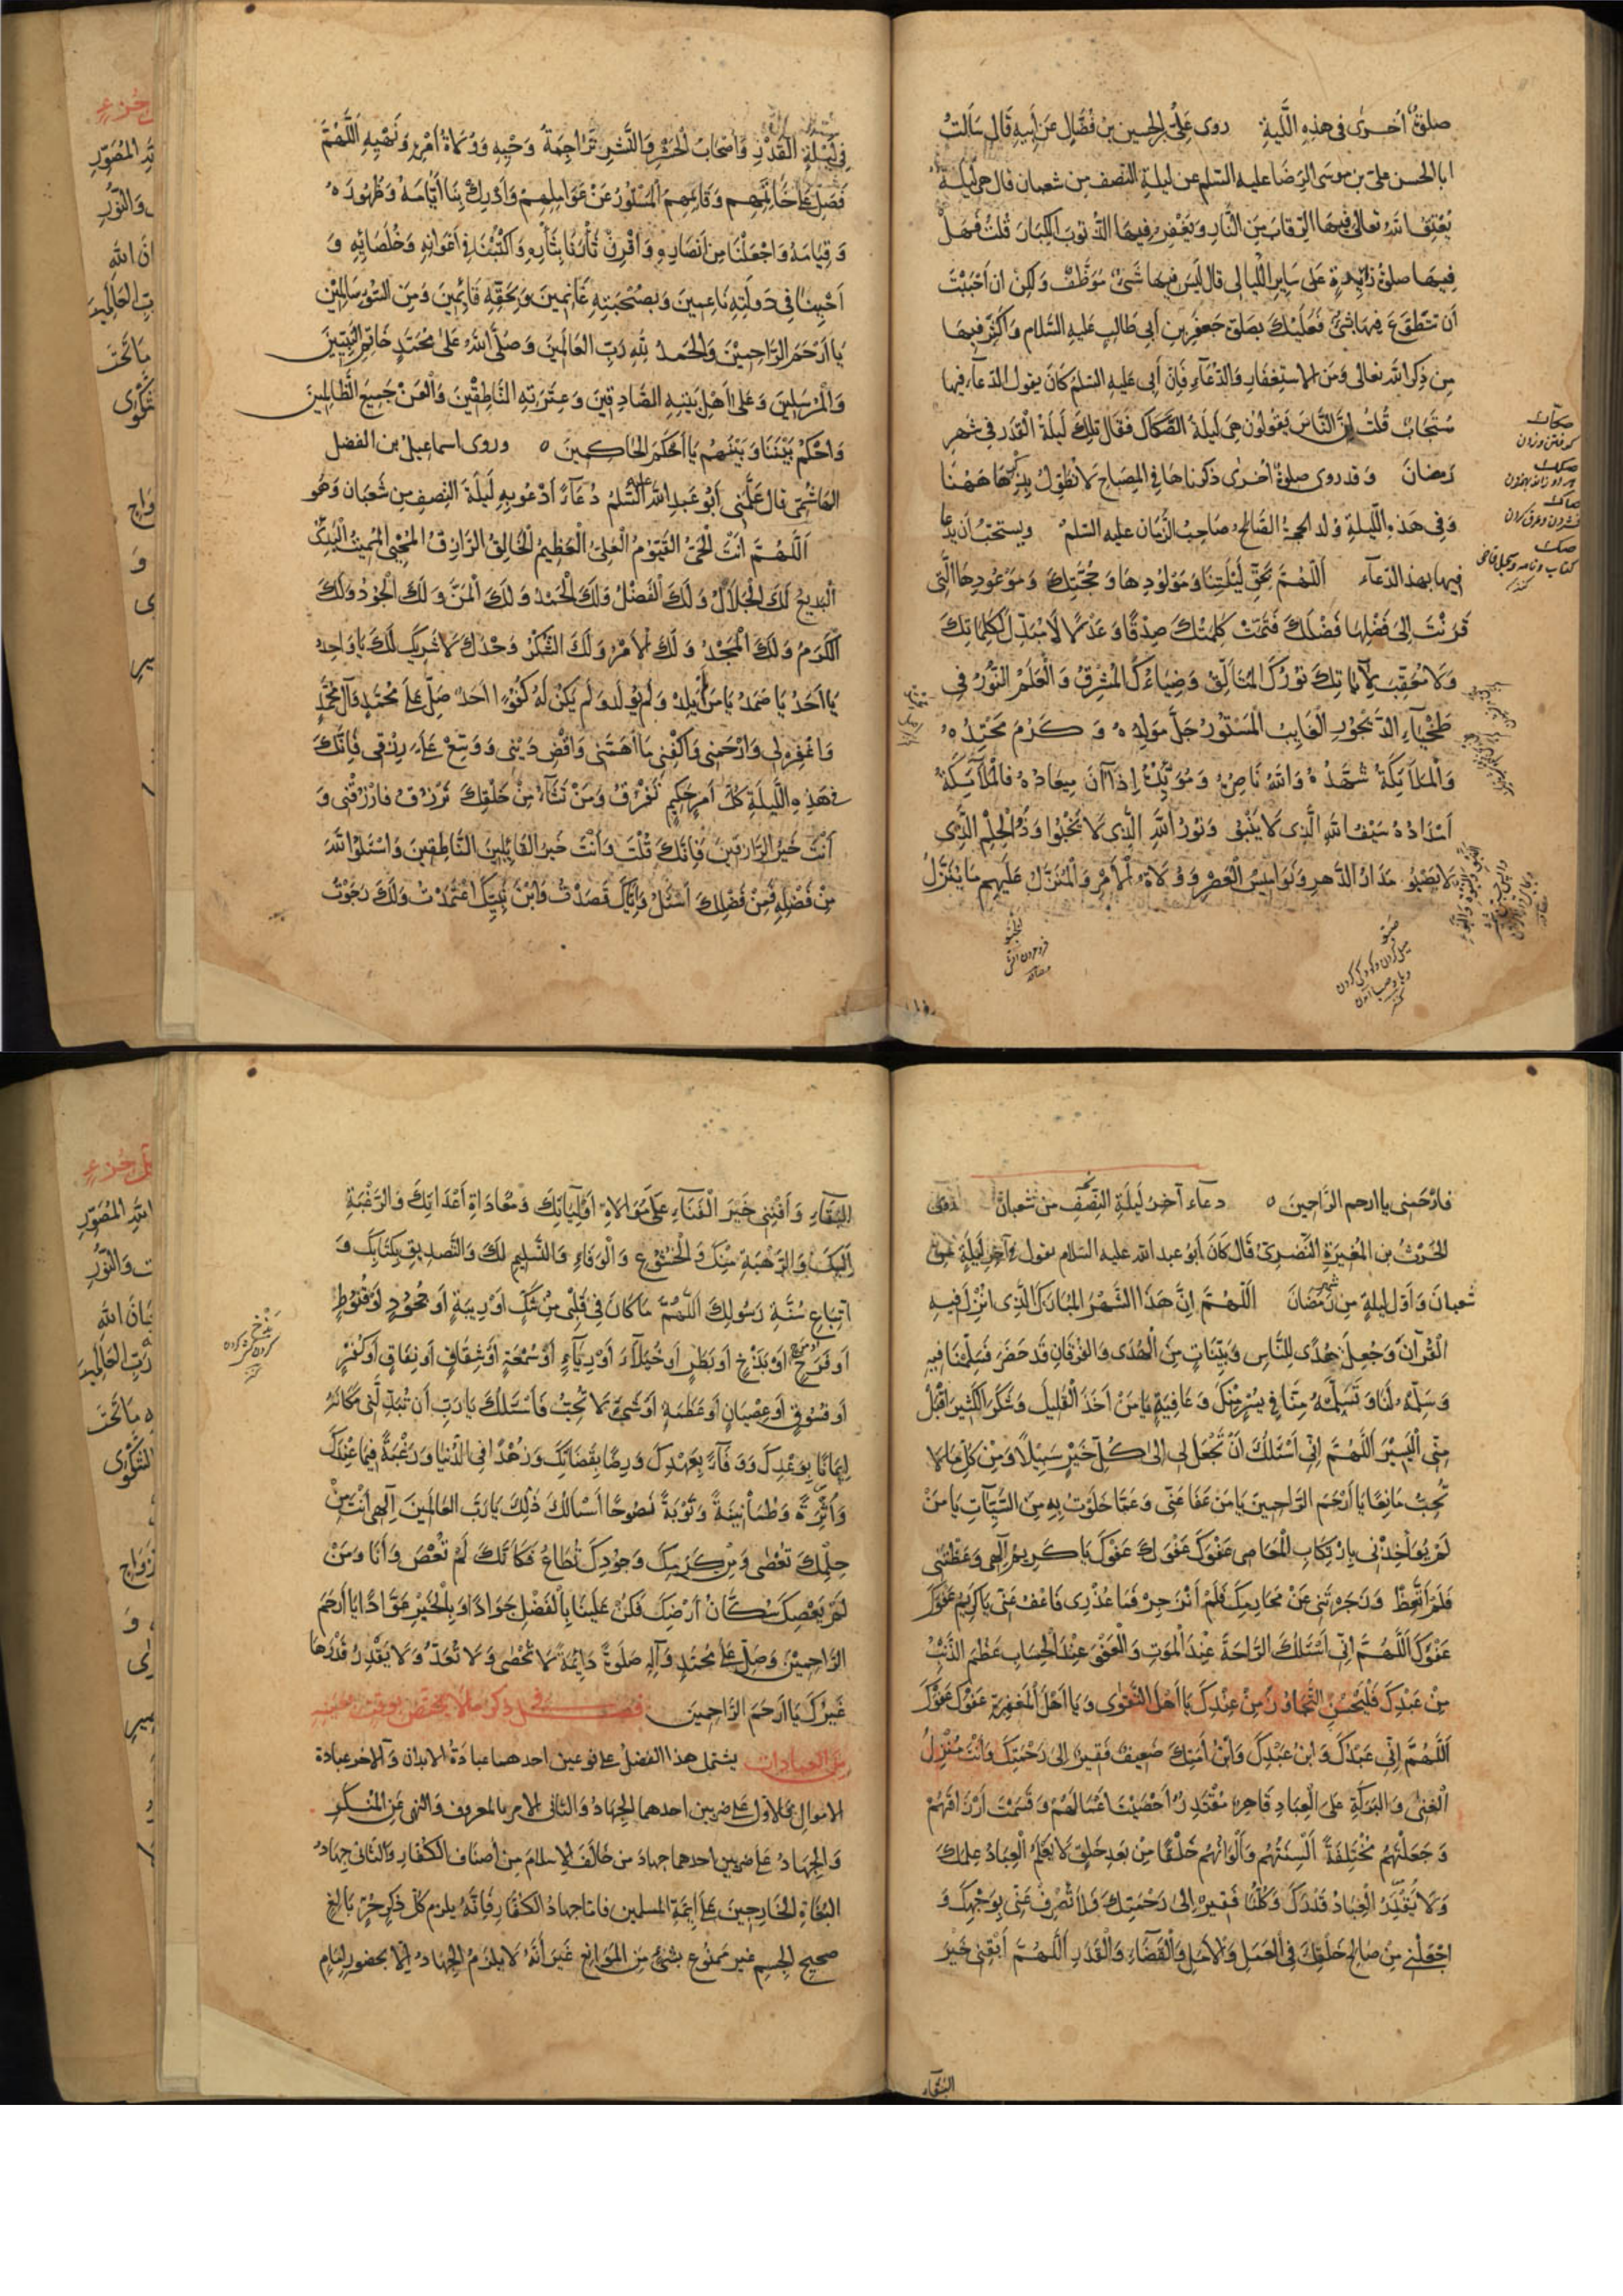 صلوةٌ اُخرى فى هذِهِ اللَّيلةِ روى عَلِىُّ بن الحسين بن فضّالٍ عَن أبيهِ قَال سَألتُ
ابا الحسن علىّ بن موسَى الرِضَا عليه السّلم عن ليلةِ النّصف مِن شعبان قال هى ليلةٌ
يُعْتِقُ اللهُ تعالى فيهَا الرّقابَ مِنَ النَّارِ وَيَغْفِرُ فيهَا الذّنوبَ الكِبَارَ قُلتُ فَهَلْ
فِيهَا صلوةٌ زائِدةٌ عَلى سَايرِ اللّيَالى قال لَيسَ فيهَا شَىْءٌ مُوَظَّفٌ وَلكِنْ ان أحْبَبْتَ
أن تتَطَوَّعَ فيهَا بِشَىْءٍ فَعَلَيْكَ بِصَلوةِ جَعْفَرِ بنِ أبى طَالبٍ عَليهِ السَّلام وَأكثِر فيهَا
مِن ذِكرِ اللهِ تعالى وَمِنَ الاستِغفَارِ وَالدّعَآءِ فَاِنَّ أبى عَليهِ السّلمُ كَانَ يقول الدّعآءُ فيها
مُستَجَابٌ قُلتُ اِنَّ النَّاسَ يَقولُونَ هِىَ لَيلَةُ الصِّكَاكِ فَقَالَ تِلكَ لَيلَةُ الْقَدَرِ فى شَهرِ
رَمضانَ وَقد روى صلوةٌ اُخرىٰ ذكرناهَا فى المِصباحِ لا نُطَوِّلُ بِذِكْرِهَا هٰهُنَا
وَفى هَذهِ اللّيلةِ وُلِد الحجةُ الصَّالحُ صَاحِبُ الزَّمانِ عليه السّلمُ ويستحَبُّ أن يُدعَا
فيهَا بهذا الدّعآء اَللّهُمَّ بِحَقِّ لَيْلَتِنَا وَمَوْلُودِهَا وَحُجَّتِكَ وَمَوْعُودِهَا الَّتى
قَرَنْتَ اِلىٰ فَضْلِهَا فَضْلَكَ فَتَمَّتْ كَلِمَتُكَ صِدْقًا وَعَدْلًا لَا مُبَدِّلَ لِكَلِمَاتِكَ
وَلَا مُعَقِّبَ لِآيَاتِكَ نُورُكَ المُتَألِّقُ وَضِيَاءُكَ المُشْرِقُ وَالْعَلَمُ النُّورُ فِى
طَخْيَآءِ الدَّيْجُورِ الْغَايِبُ الْمَسْتُورُ جَلَّ مَوْلِدُهُ وَكَرُمَ مَحْتِدُهُ
وَالْمَلآئِكَةُ شُهَّدُهُ وَاللهُ نَاصِرُهُ وَمُؤَيِّدُهُ اِذَا آنَ مِيعَادُهُ فَالْمَلآئِكَةُ
اَمْدَادُهُ سَيْفُ اللهِ الَّذِى لَا يَنْبُو وَنُورُ اللهِ الَّذِى لَا يَخْبُوا وَذُو الْحِلْمِ الَّذِى
لَا يَصْبُو مَدَارُ الدَّهرِ وَنَوَامِيسُ الْعَصْرِ وَوُلَاةُ الْأَمْرِ وَالْمُنَزَّلُ عَلَيهِم مَا يَنْزِلُ
فِى لَيْلَةِ الْقَدْرِ وَأصْحَابُ الْحَشْرِ وَالنَّشْرِ تَرَاجِمَةُ وَحْيِهِ وَوُلَاةُ أمْرِهِ وَنَهْيِهِ اَللّهُمَّ
فَصَلِّ عَلىٰ خَاتَمِهِم وَقَائِمِهِمُ الْمَسْتُورِ عَنْ عَوَالِمِهِمْ وَأدْرِكْ بِنَا أيَّامَهُ وَظُهُورَهُ
وَقِيَامَهُ وَاجْعَلْنَا مِنْ اَنصَارِهِ وَاقْرِنْ ثَأرَنَا بِثَأرِهِ وَاكْتُبْنَا فِى أعْوَانِهِ وَخُلَصَائِهِ وَ
أحْيِنَا فى دَوْلَتِهِ نَاعِمِينَ وَبِصُحْبَتِهِ غَانِمِينَ وَبِحَقِّهِ قَائِمِينَ وَمِنَ السُّوءِ سَالِمِيْن
يَا أرْحَمَ الرَّاحِمِيْنَ وَالْحَمدُ لِلّهِ رَبِّ العَالَمِينَ وَصَلَّى اللهُ عَلىٰ مُحَمَّدٍ خَاتَمِ النَّبِيِّينَ
وَالْمُرْسَلِينَ وَعَلىٰ أهْلِ بَيْتِهِ الصَّادِقِينَ وَعِتْرَتِهِ النَّاطِقْيْنَ وَالْعَنْ جَمِيعَ الظَّالِمِينَ
وَاحْكُمْ بَيْنَنَا وَبَيْنَهُمْ يَا أحْكَمَ الحَاكِمينَ ورَوى اسماعيلُ بن الفضل
الهَاشمىّ قال عَلَّمَنى أبُو عَبدِ اللهِ عليه السَّلمُ دُعَآءً أدْعُو بِهِ لَيلَةَ النِّصفِ مِن شَعْبَانَ وَهُو
اَللّهُمَّ أنْتَ الْحَىُّ القَيّومُ الْعَلِىُّ الْعَظِيمُ الْخَالِقُ الرَّازِقُ المُحْيِى المُمِيتُ الْبَدِئُ
الْبَدِيعُ لَكَ الْجَلَالُ وَلَكَ الْفَضْلُ وَلَكَ الْحَمْدُ وَلَكَ الْمَنُّ وَلَكَ الْجُودُ وَلَكَ
الْكَرَمُ وَلَكَ الْمَجْدُ وَلَكَ الْأَمْرُ وَلَكَ الشُّكْرُ وَحْدَكَ لَا شَرِيكَ لَكَ يَا وَاحِدُ
يَا أحَدُ يَا صَمَدُ يَا مَن لَمْ يَلِدْ وَلَم يُولَدْ وَلَمْ يَكُنْ لَهُ كُفُوًا أحَدٌ صَلِّ عَلىٰ مُحَمَّدٍ وَآلِ مُحَمَّدٍ
وَاغْفِر لِى وَارْحَمنِى وَاكْفِنِى مَا أهَمَّنِى وَاقْضِ دَيْنِى وَوَسِّعْ عَلَىَّ رِزْقِى فَاِنَّكَ
فى هَذِهِ اللَّيلَةِ كُلَّ أمرٍ حَكِيمٍ تَفْرُقُ وَمَنْ تَشَآءُ مِنْ خَلْقِكَ تَرْزُقُ فَارْزُقْنِى وَ
أنْتَ خَيْرُ الرَّازِقِينَ فَاِنَّكَ قُلْتَ وَأنْتَ خَيرُ القَائِلِينَ النَّاطِقِينَ وَاسْئَلُوا اللهَ
مِنْ فَضْلِهِ فَمِنْ فَضْلِكَ أسْئَلُ وَاِيَّاكَ قَصَدْتُ وَابْنَ نَبِيِّكَ اعْتَمَدْتُ وَلَكَ رَجَوْتُ
فارْحَمْنِى يا ارحم الرَّاحِمينَ دعآء آخر لَيلَةِ النِّصْفِ مِن شعبان روى
الحَرْثُ بن المُغِيرَةِ النَّصْرِىُّ قَال كَانَ أبُو عبد الله عليه السّلام يقول فى آخِرِ لَيلَةٍ مِن
شَعبانَ وَأوّلِ ليلةٍ مِن شهر رَمَضَانَ اَللّهُمَّ اِنَّ هَذَا الشَّهْرَ المُبَارَكَ الَّذِى اُنْزِلَ فِيهِ
الْقُرآنُ وَجُعِلَ هُدًى لِلنَّاسِ وَبَيِّنَاتٍ مِنَ الْهُدَى وَالفُرْقَانِ قَد حَضَرَ فَسَلِّمْنَا فِيهِ
وَسَلِّمْهُ لَنَا وَتَسَلَّمْهُ مِنَّا فِى يُسْرٍ مِنْكَ وَعَافِيَةٍ يَا مَنْ اَخَذَ الْقَلِيلَ وَشَكَرَ الْكَثِيرَ اقْبَلْ
مِنِّى الْيَسِيْرَ اَللّهُمَّ اِنِّى أسْئَلُكَ أنْ تَجْعَلَ لى اِلىٰ كُلِّ خَيْرٍ سَبِيْلًا وَمِنْ كُلِّ مَا لا
تُحِبُّ مَانِعًا يَا أرْحَمَ الرَّاحِمِينَ يَا مَنْ عَفَا عَنِّى وَعَمَّا خَلَوْتُ بِهِ مِنَ السَّيِّآتِ يَا مَنْ
لَمْ يُؤَاخِذْنِى بِارْتِكَابِ الْمَعَاصِى عَفْوَكَ عَفْوَكَ عَفْوَكَ يَا كَرِيمُ اِلهى وَعَظْتَنِى
فَلَمْ أتَّعِظْ وَزَجَرْتَنِى عَنْ مَحَارِمِكَ فَلَمْ أنْزَجِرْ فَمَا عُذْرِى فَاعْفُ عَنِّى يَا كَرِيمُ عَفْوَكَ
عَفْوَكَ اَللّهُمَّ اِنِّى أسْئَلُكَ الرَّاحَةَ عِنْدَ الْمَوتِ وَالْعَفْوَ عِنْدَ الْحِسَابِ عَظُمَ الذَّنْبُ
مِنْ عَبْدِكَ فَلْيَحْسُنِ التَّجَاوُزُ مِنْ عِنْدِكَ يَا أهْلَ التَّقوٰى وَيَا أهْلَ الْمَغْفِرَةِ عَفْوَكَ عَفْوَكَ
اَللّهُمَّ اِنِّى عَبْدُكَ وَابنُ عَبْدِكَ وَابْنُ أمَتِكَ ضَعِيفٌ فَقِيرٌ اِلى رَحْمَتِكَ وَأنْتَ مُنْزِلُ
الْغِنى وَالبَرَكَةِ عَلَى الْعِبَادِ قَاهِرٌ مُقْتَدِرٌ أحْصَيْتَ أعْمَالَهُمْ وَقَسَمْتَ أرْزَاقَهُمْ
وَجَعَلْتَهُمْ مُخْتَلِفَةً ألْسِنَتُهُم وَألْوَانُهُم خَلْقًا مِنْ بَعدِ خَلقٍ لَا يَعْلَمُ الْعِبَادُ عِلمَكَ
وَلَا يَقْدِرُ الْعِبَادُ قَدْرَكَ وَكُلُّنَا فَقِيرٌ اِلىٰ رَحْمَتِكَ فَلَا تَصْرِفْ عَنِّى بِوَجْهِكَ وَ
اجْعَلْنِى مِنْ صَالِحِ خَلْقِكَ فِى الْعَمَلِ وَالْأمَلِ وَالْقَضَآءِ وَالْقَدَرِ اَللّهُمَّ أبْقِنِى خَيْرَ
البَقَآءِ
الْبَقَآءِ وَأفْنِنِى خَيرَ الْفَنَآءِ عَلىٰ مُوَالَاةِ أوْلِيَائِكَ وَمُعَادَاةِ أعْدَائِكَ وَالرَّغْبَةِ
اِلَيْكَ وَالرَّهْبَةِ مِنْكَ وَالْخُشُوْعِ وَالْوَفَاءِ وَالتَّسْلِيمِ لَكَ وَالتَّصدِيقِ بِكِتَابِكَ وَ
اتّبَاعِ سُنَّةِ رَسُولِكَ اَللّهُمَّ مَا كَانَ فِى قَلْبِى مِنْ شَكٍّ أوْ رِيبَةٍ أو جُحُودٍ أوْ قُنُوطٍ
أو فَرَحٍ أوْ بَذَخٍ أو بَطَرٍ أو خُيَلَآءَ أوْ رِيَآءٍ أوْ سُمْعَةٍ أوْ شِقَاقٍ أو نِفَاقٍ أو كُفْرٍ
أو فُسُوقٍ أو عِصْيَانٍ أو عَظَمَةٍ أوْ شَىْءٍ لَا تُحِبُّ فَأسْئَلُكَ يَا رَبِّ أن تُبَدِّلَنِى مَكَانَهُ
اِيمَانًا بِوَعْدِكَ وَوَفَآءً بِعَهْدِكَ وَرِضًا بِقَضَائِكَ وَزُهْدًا فى الدُّنْيَا وَرَغْبَةً فِيمَا عِنْدَكَ
وَأثَرَةً وَطُمَأنِينَةً وَتَوْبَةً نَصُوحًا أسْألُكَ ذٰلِكَ يَا رَبَّ العَالَمِينَ اِلٰهى أنْتَ مِنْ
حِلْمِكَ تُعْصٰى وَمِنْ كَرَمِكَ وَجُودِكَ تُطَاعُ فَكَأنَّكَ لَمْ تُعْصَ وَأنَا وَمَنْ
لَمْ يَعْصِكَ سُكَّانُ أرْضِكَ فَكُنْ عَلَيْنَا بِالْفَضْلِ جَوَادًا وَبِالْخَيْرِ عَوَّادًا يَا أرحَمَ
الرَّاحِمِيْنَ وَصَلِّ عَلىٰ مُحَمَّدٍ وَآلِهِ صَلَوةً دَائِمَةً لَا تُحْصٰى وَلَا تُعَدُّ وَلَا يَقْدِرُ قَدْرَهَا
غَيْرُكَ يَا أرحَمَ الرَّاحِمِينَ فصل فى ذكر ما لا يختصّ بوقت معيّن
مِنَ العبادات يشتمل هذا الفصلُ على نوعين احدهما عبادةُ الابدان وَالآخر عبادة
الاموال فالاوّل على ضربين احدهما الجِهَادُ وَالثانى الامر بالمعروف وَالنهى عَن المُنكَرِ
وَالجِهَادُ عَلى ضربين احدهما جهادُ من خَالَفَ الاسلامَ مِن أصنَافِ الكُفّارِ وَالثانى جِهَادُ
البُغَاةِ الخَارِجِينَ عَلىٰ أئِمَّةِ المسلمين فامّا جهادُ الكُفَّارِ فَاِنَّهُ يلزم كُلَّ ذَكَرٍ حُرٍّ بَالِغٍ
صحيح الجسمِ غير مَمنُوعٍ بشَىْءٍ مِنَ المَوَانِع غَيرَ أنَّهُ لَا يلزمُ الجِهَادُ اِلّا بحضورِ اِمَامٍ